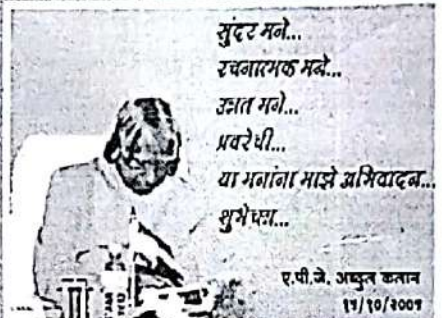 सुंदर मने...
रचनात्मक मने...
उन्नत मने...
या मनांना माझे अभिवादन...
शुभेच्छा...
ए.पी.जे. अब्दुल कलाम
१५/१०/२००१